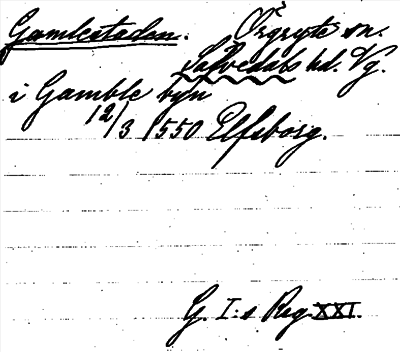 Gamlestaden. Örgryte sn.
Säfvedals hd. Vg.
i Gamble byn
12/3 1550 Elfsborg.
G. I:s Reg XXI.